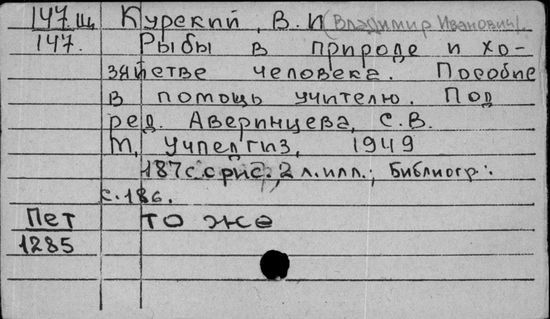 147.Щ Курский, В. И (Владимир Иванович).
147. Рыбы в природе и хо-
зяйстве человека. Пособие
в помощь учителю. Под
ред. Аверинцева, С.В.
М, Учпедгиз, 1949
187 с. с рис., 2 л. илл.; Библиогр:
с. 186.
Пет то же
1285